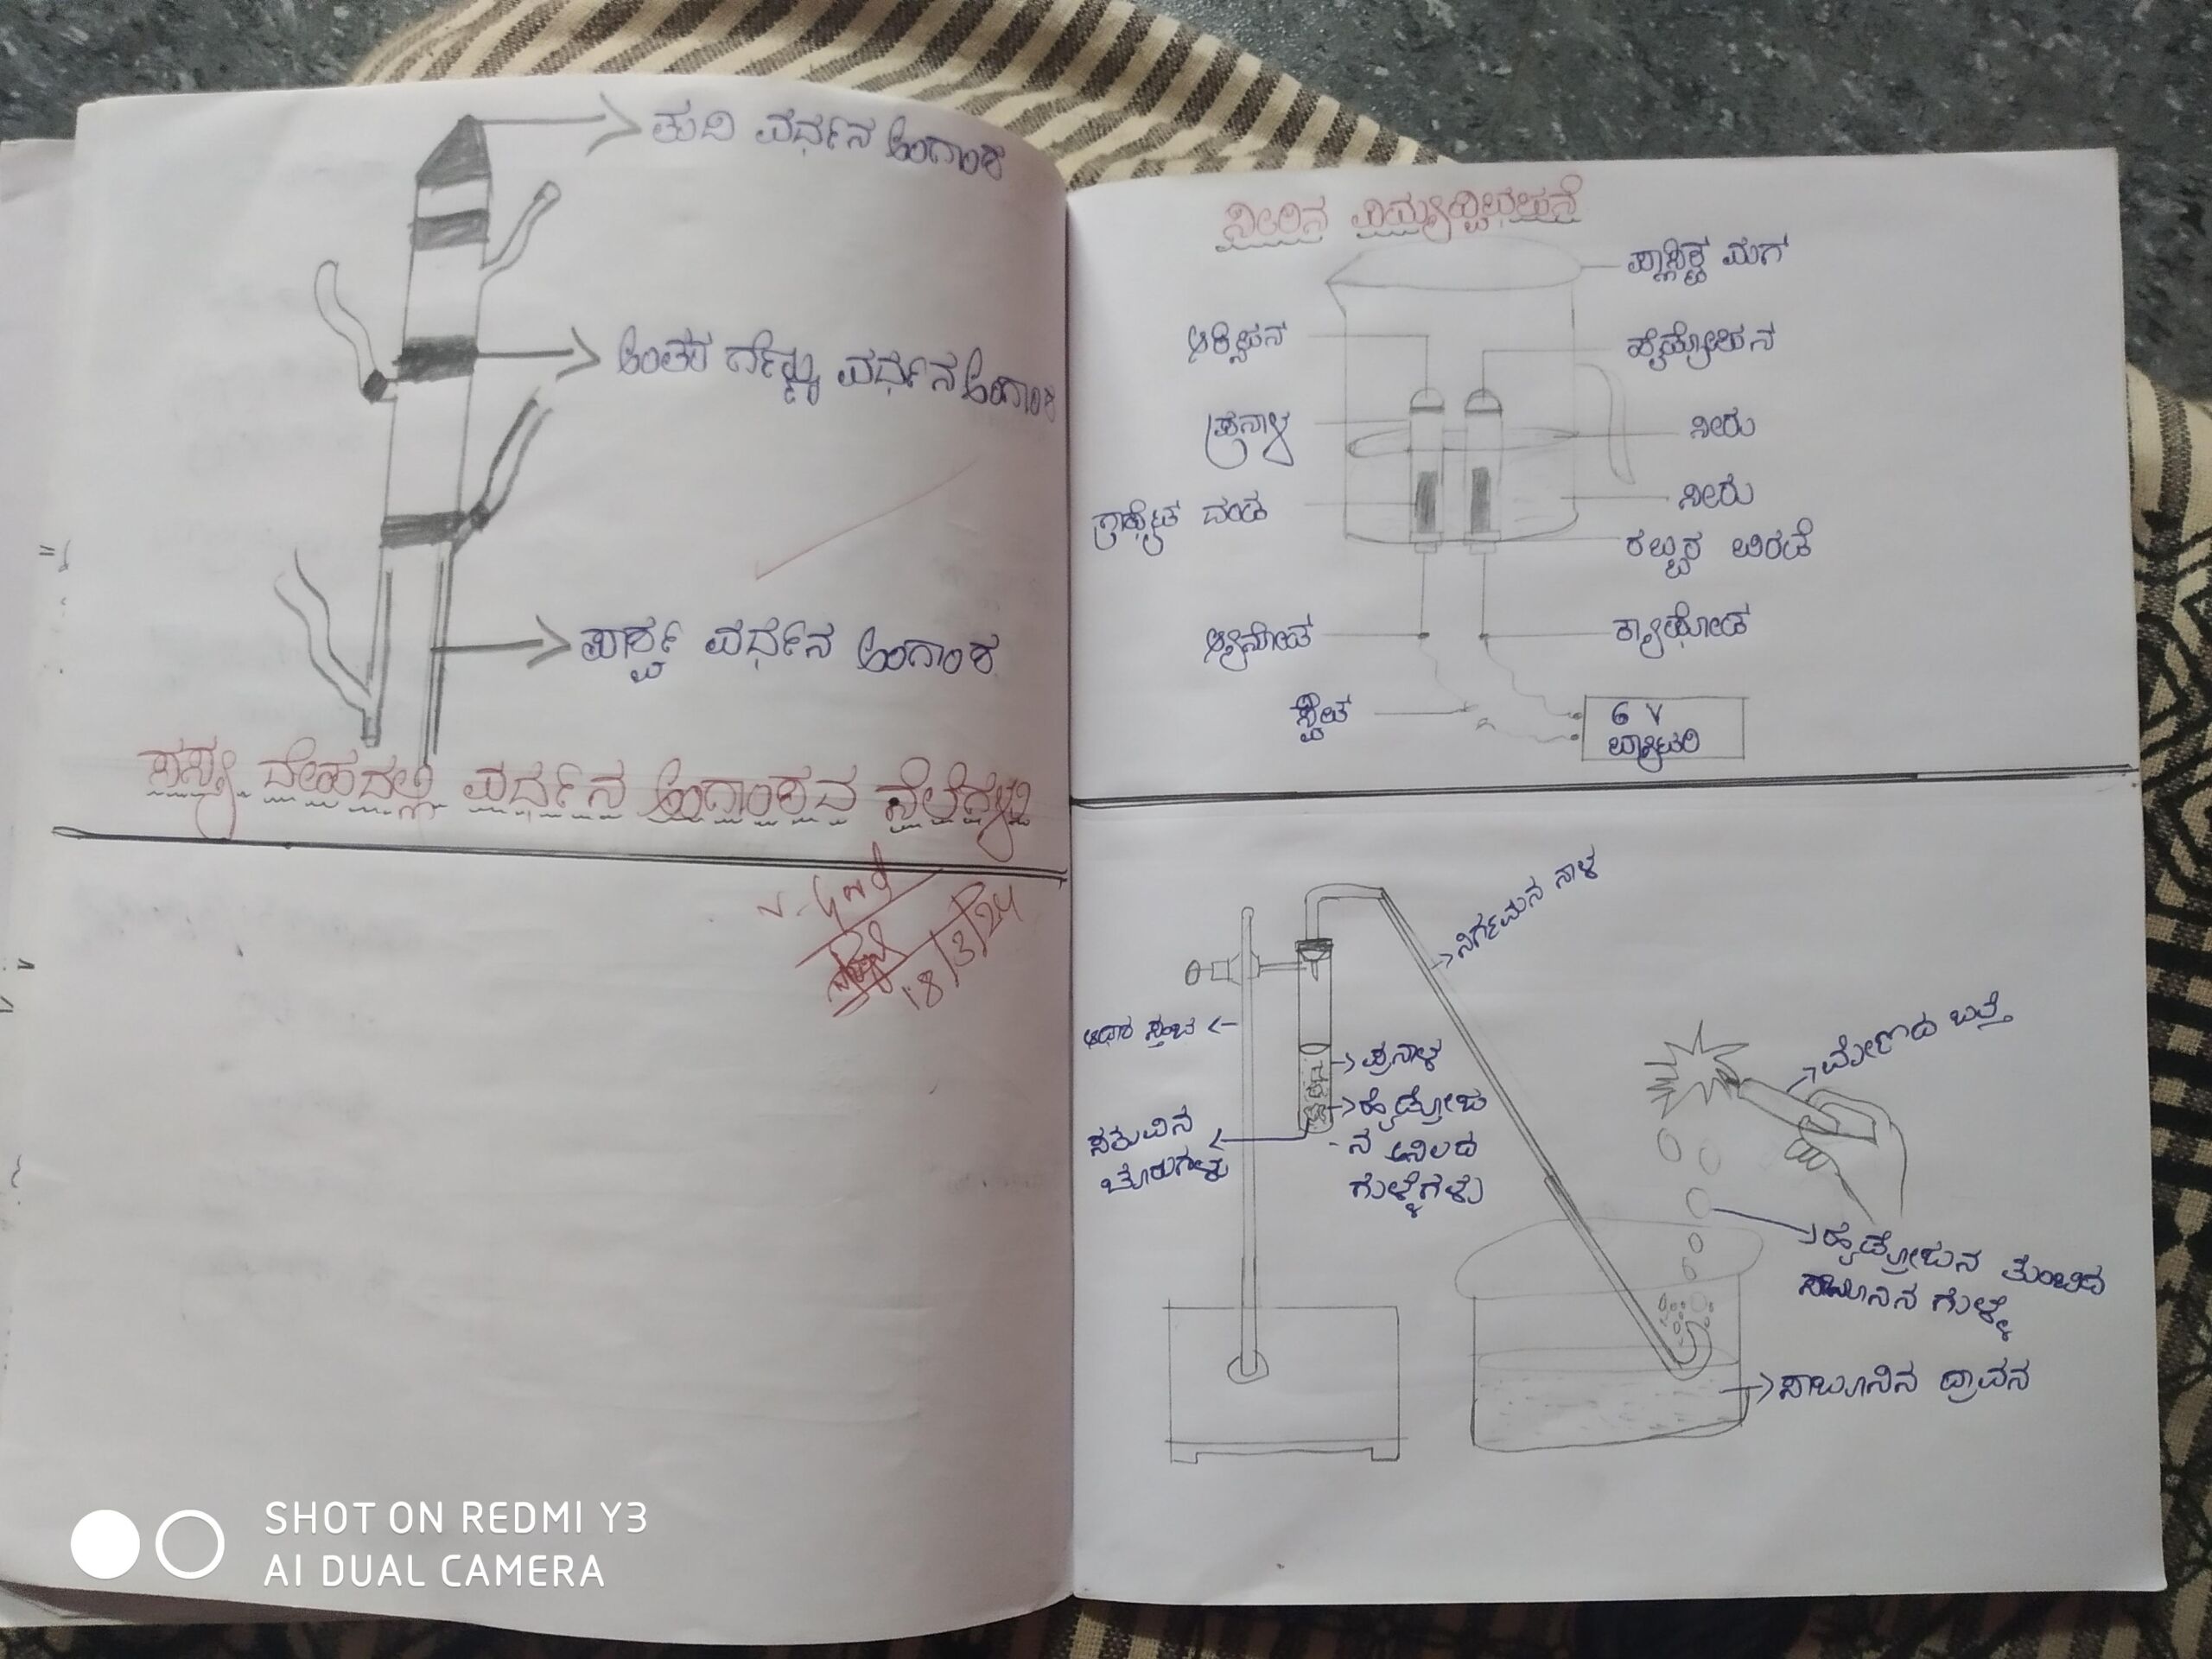 ತುದಿ ವರ್ಧನ ಅಂಗಾಂಶ
ಅಂತರ ಗೆಣ್ಣು ವರ್ಧನ ಅಂಗಾಂಶ
ಪಾರ್ಶ್ವ ವರ್ಧನ ಅಂಗಾಂಶ
ಸಸ್ಯ ದೇಹದಲ್ಲಿ ವರ್ಧನ ಅಂಗಾಂಶದ ನೆಲೆಗಳು
18/3/24
ನೀರಿನ ವಿದ್ಯುದ್ವಿಭಜನೆ
ಪ್ಲಾಸ್ಟಿಕ್ ಮಗ್
ಆಕ್ಸಿಜನ್
ಹೈಡ್ರೋಜನ್
ಪ್ರನಾಳ
ನೀರು
ಗ್ರಾಫೈಟ್ ದಂಡ
ನೀರು
ರಬ್ಬರ್ ಬಿರಡೆ
ಆ್ಯನೋಡ್
ಕ್ಯಾಥೋಡ್
ಸ್ವಿಚ್
6 V
ಬ್ಯಾಟರಿ
ನಿರ್ಗಮನ ನಾಳ
ಆಧಾರ ಸ್ತಂಭ
ಪ್ರನಾಳ
ಹೈಡ್ರೋಜ
-ನ ಅನಿಲದ
ಗುಳ್ಳೆಗಳು
ಸತುವಿನ
ಚೂರುಗಳು
ಮೇಣದ ಬತ್ತಿ
ಹೈಡ್ರೋಜನ ತುಂಬಿದ
ಸಾಬೂನಿನ ಗುಳ್ಳೆ
ಸಾಬೂನಿನ ದ್ರಾವನ
SHOT ON REDMI Y3
AI DUAL CAMERA